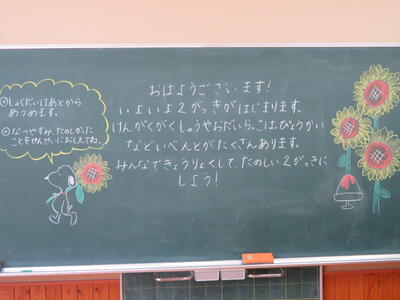 ⊙しゅくだいはあとから
あつめます。
⊙なつやすみ、たのしかった
ことをせんせいにおしえてね。
おはようございます!
いよいよ2がっきがはじまります。
けんがくがくしゅうやおだいらっこはっぴょうかい
などいべんとがたくさんあります。
みんなできょうりょくして、たのしい2がっきに
しよう!